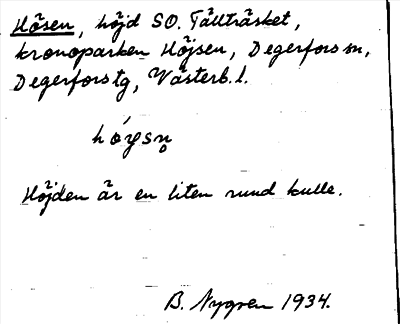 Hösen, höjd SO. Tällträsket,
kronoparken Höjsen, Degerfors sn,
Degerfors tg, Västerb. l.
Höjden är en liten rund kulle.
B. Nygren 1934.